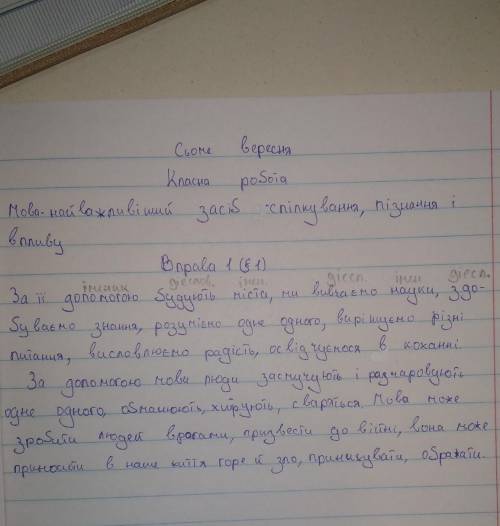 Сьоме вересня
Класна робота
Мова - найважливіший засіб спілкування, пізнання і
впливу
Вправа 1 (§1)
іменик дієслов. імен. дієсл. імен дієсл.
За її допомогою будують міста, ми вивчаємо науки, здо-
буваємо знання, розуміємо одне одного, вирішуємо різні
питання, висловлюємо радість, освідчуємося в коханні.
За допомогою мови люди засмучують і розчаровують
одне одного, обманюють, хитрують, сваряться. Мова може
зробити людей ворогами, призвести до війни, вона може
приносити в наше життя горе й зло, принижувати, ображати.